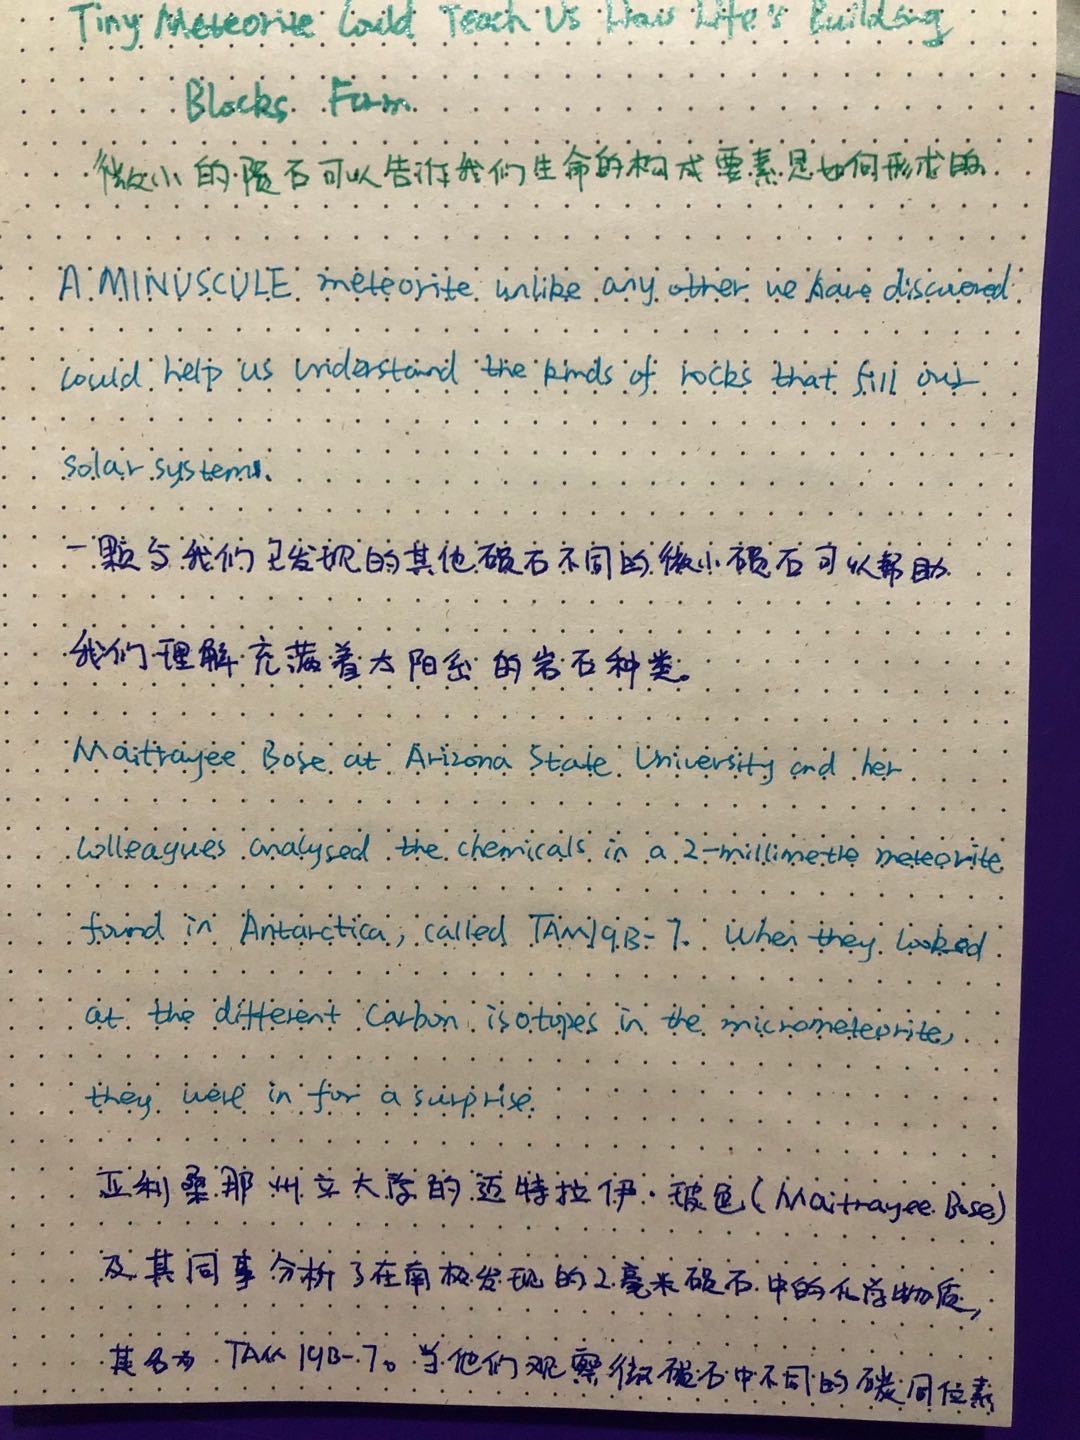 Tiny Meteorite Could Teach Us How Life's Building
Blocks Form
微小的陨石可以告诉我们生命的构成要素是如何形成的
A MINUSCULE meteorite unlike any other we have discovered
could help us understand the kinds of rocks that fill our
solar system.
一颗与我们已发现的其他陨石不同的微小陨石可以帮助
我们理解充满着太阳系的岩石种类。
Maitrayee Bose at Arizona State University and her
colleagues analysed the chemicals in a 2-millimetre meteorite
found in Antarctica, called TAM19B-7. When they looked
at the different carbon isotopes in the micrometeorite,
they were in for a surprise.
亚利桑那州立大学的迈特拉伊·玻色(Maitrayee Bose)
及其同事分析了在南极发现的2毫米陨石中的化学物质,
其名为TAM19B-7。当他们观察微陨石中不同的碳同位素